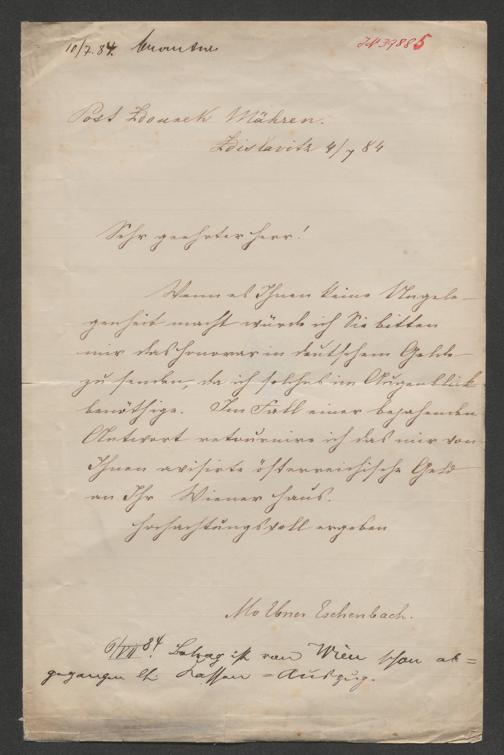 10/7. 84.
IN 39885
Post Zdounek Mähren.
Zdislavitz 4/7 84
Sehr geehrter Herr!
Wenn es Ihnen keine Ungele-
genheit macht würde ich Sie bitten
mir das Honorar in deutschem Gelde
zu senden, da ich solches im Augenblick
benöthige. Im Fall einer bejahenden
Antwort retournire ich das mir von
Ihnen avisirte österreichische Geld
an Ihr Wiener Haus.
Hochachtungsvoll ergeben
Mo Ebner Eschenbach.
6/VII 84. Betrag ist von Wien schon ab=
gegangen lt. Kassen=Auszug.